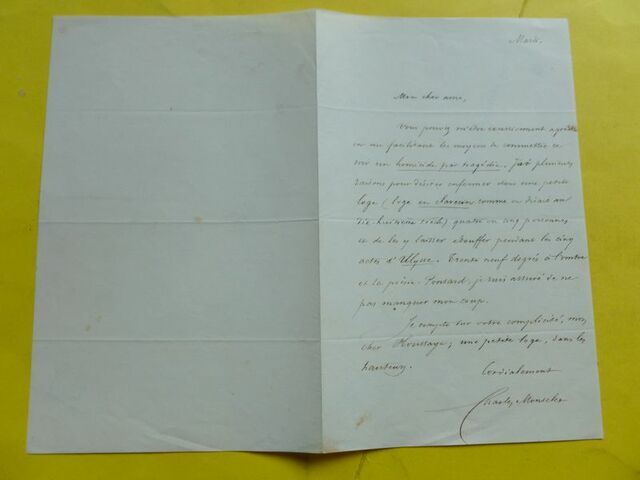 Mardi.
Mon cher ami,
Vous pouvez m'être
en me facilitant les moyens de commettre ce
soir un homicide par tragédie. J'ai plusieurs
raisons pour désirer enfermer dans une petite
loge (loge en clavecin comme on disait au
dix-huitième siècle) quatre ou cinq personnes
et de les y laisser étouffer pendant les cinq
actes d'Ulysse. Trente neuf degrés à l'ombre
et la poésie Ponsard, je suis assuré de ne
pas manquer mon coup.
Je compte sur votre complicité, mon
cher Houssaye; une petite loge, dans les
hauteurs.
Cordialement
Charles Monselet